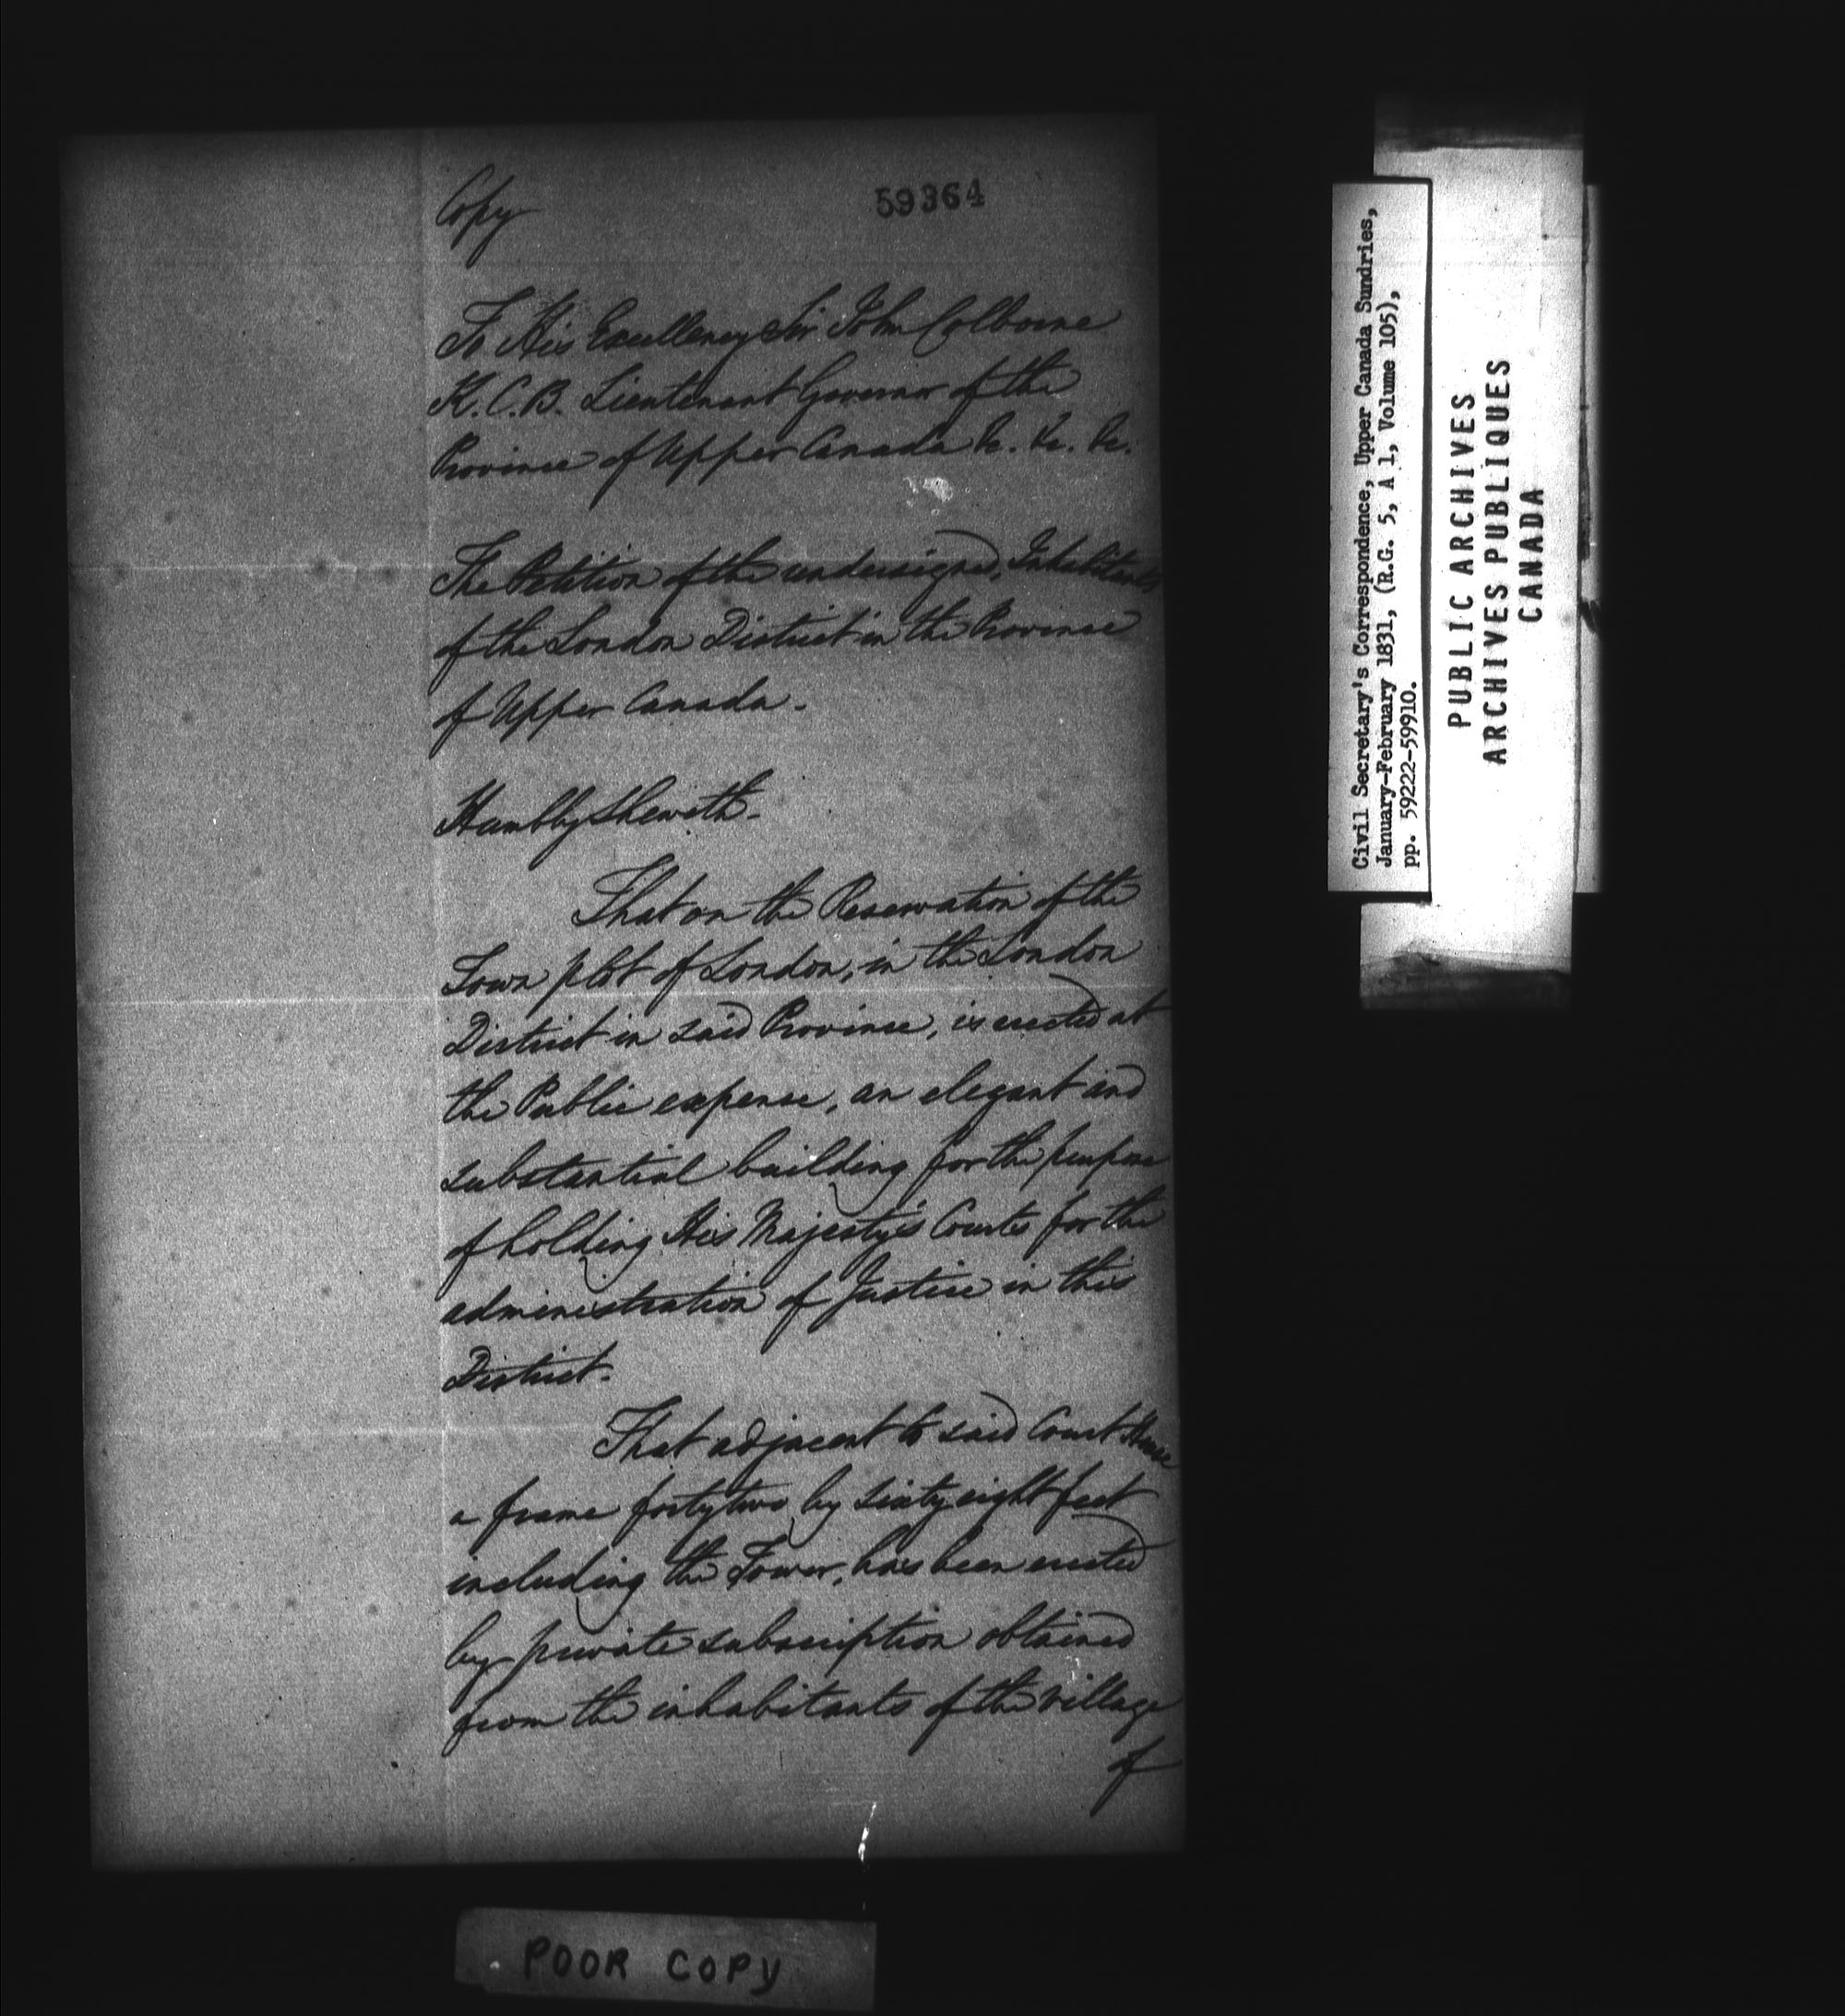 Copy
59364
To His Excellency Sir John Colborne
K.C.B. Lieutenant Governor of the
Province of Upper Canada &c. &c. &c.
The Petition of the undersigned, Inhabitants
of the London District in the Province
of Upper Canada.
Humbly Sheweth.
That on the Reservation of the
Town plot of London, in the London
District in said Province, is erected at
the Public expense, an elegant and
substantial building for the purpose
of holding His Majesty's Courts for the
administration of Justice in this
District.
That adjacent to said Court House
a frame forty two by sixty eight feet
including the Tower, has been erected
by private subscription obtained
from the inhabitants of the village
of
POOR COPY
Civil Secretary's Correspondence, Upper Canada Sundries,
January-February 1831, (R.G. 5, A 1, Volume 105),
pp. 59222-59910.
PUBLIC ARCHIVES
ARCHIVES PUBLIQUES
CANADA